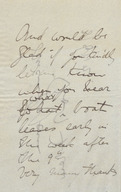 And would be
glad if you kindly
let me know
when you hear
what boat
leaves early in
the week after
the 9th
Very many thanks